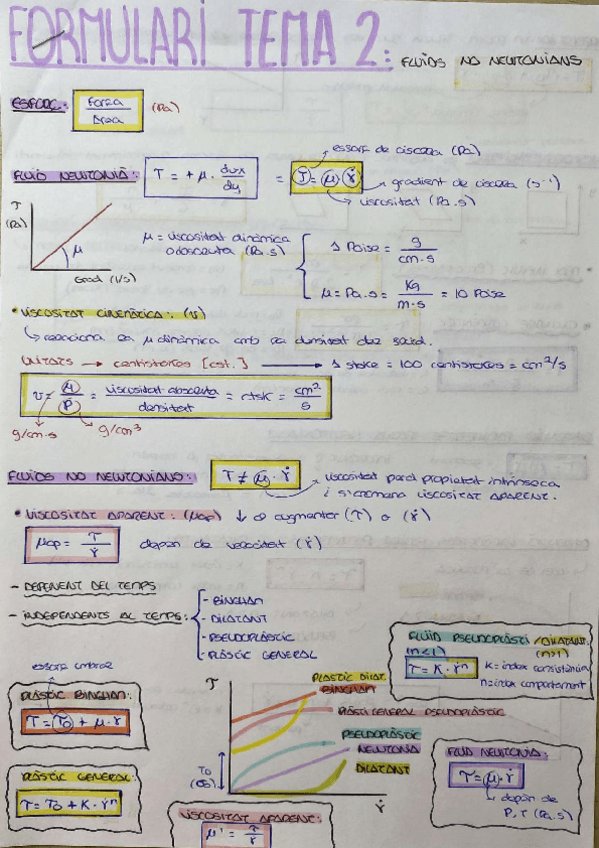 FORMULARI TEMA 2: FLUIDS NO NEWTONIANS
ESFORÇ: Força / Àrea (Pa)
esforç de ciscera (Pa)
FLUID NEWTONIÀ: τ = + μ · dvx / dy = τ = μ · γ̇ → gradient de ciscera (s⁻¹)
viscositat (Pa.s)
τ (Pa)
μ
Grad (1/s)
μ = viscositat dinàmica o absoluta (Pa.s)
1 Poise = g / cm·s
μ = Pa.s = Kg / m·s = 10 Poise
• VISCOSITAT CINEMÀTICA: (υ)
↳ relaciona la μ dinàmica amb la densitat del
UNITATS → centistokes [cst.] → 1 stoke = 100 centistokes = cm²/s
υ = μ / ρ = viscositat absoluta / densitat = ctsk = cm² / s
g/cm·s
g/cm³
FLUIDS NO NEWTONIANS: τ ≠ μ · γ̇ → viscositat perd propietat intrínseca
i s'anomena VISCOSITAT APARENT.
• VISCOSITAT APARENT: (μap) ↓ al augmentar (τ) o (γ̇)
μap = τ / γ̇ depèn de velocitat (γ̇)
- DEPENENT DEL TEMPS
- INDEPENDENTS AL TEMPS:
- BINGHAM
- DILATANT
- PSEUDOPLÀSTIC
- PLÀSTIC GENERAL
FLUID PSEUDOPLÀSTI / DILATANT:
(n<1) (n>1)
τ = K · γ̇ⁿ
K = índex consistència
n = índex comportament
esforç llindar
PLÀSTIC BINGHAM:
τ = τo + μ · γ̇
PLÀSTIC GENERAL:
τ = τo + K · γ̇ⁿ
τ
PLÀSTIC DILAT.
BINGHAM
PLÀSTI GENERAL PSEUDOPLÀSTIC
PSEUDOPLÀSTIC
NEWTONIÀ
DILATANT
τo
γ̇
FLUID NEWTONIÀ:
τ = μ · γ̇
↳ depèn de
P, T (Pa.s)
VISCOSITAT APARENT:
μ' = τ / γ̇